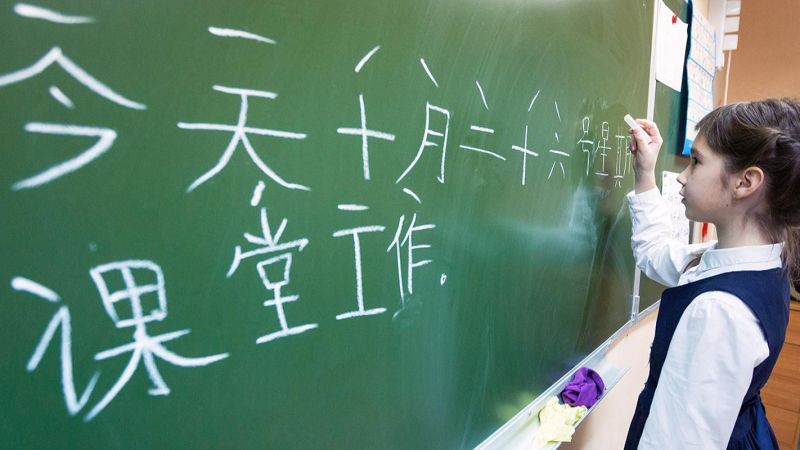 今天十月二十六号星期
课堂工作.